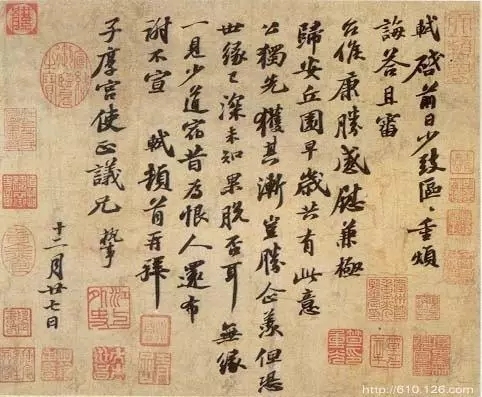 軾啓前日少致區々重煩
誨答且審
台候康勝感慰兼極
歸安丘園早歲共有此意
公獨先獲其漸豈勝企羨但恐
世緣已深未知果脫否耳無緣
一見少道宿昔為恨人還布
謝不宣 軾頓首再拜
子厚宮使正議兄 執事
十二月廿七日
http://610.126.com